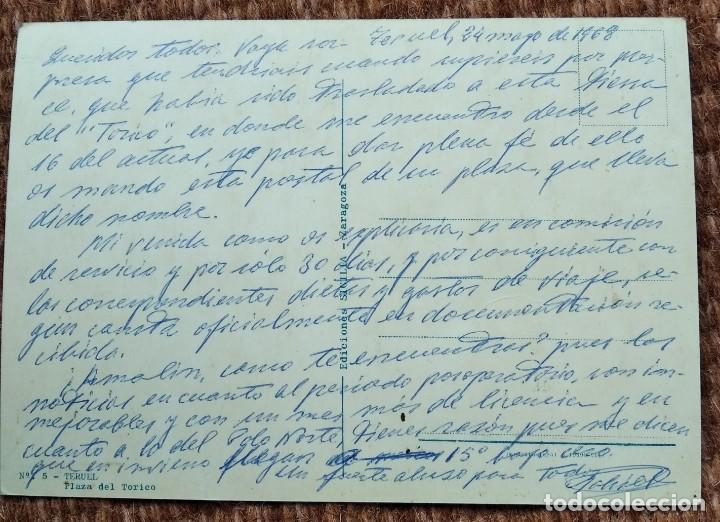 Teruel, 24 mayo de 1968
Queridos todos: Vaya sor-
presa que tendriais cuando supieseis por
ce, que habia sido trasladado a esta tierra
del "Torico", en donde me encuentro desde el
16 del actual, ya para dar plena fé de ello
os mando esta postal de su plaza, que lleva
dicho nombre.
Mi venida como os explicaria, es en comisión
de servicio y por sólo 30 dias, y por consiguiente con
las correspondientes dietas y gastos de viaje, se-
gun consta oficialmente en documentación re-
cibida.
como te encuentras? pues las
noticias en cuanto al periodo posoperatorio, son in-
mejorables y con un mes más de licencia y en
cuanto a lo del Norte, tienes razón pues me dicen
que en invierno llegan 15º bajo cero.
Un fuerte abrazo para todos
Ediciones SICILIA - Zaragoza
Nº 5 - TERUEL
Plaza del Torico
todocoleccion.net